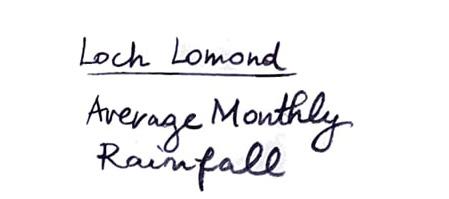 Loch Lomond
Average Monthly
Rainfall